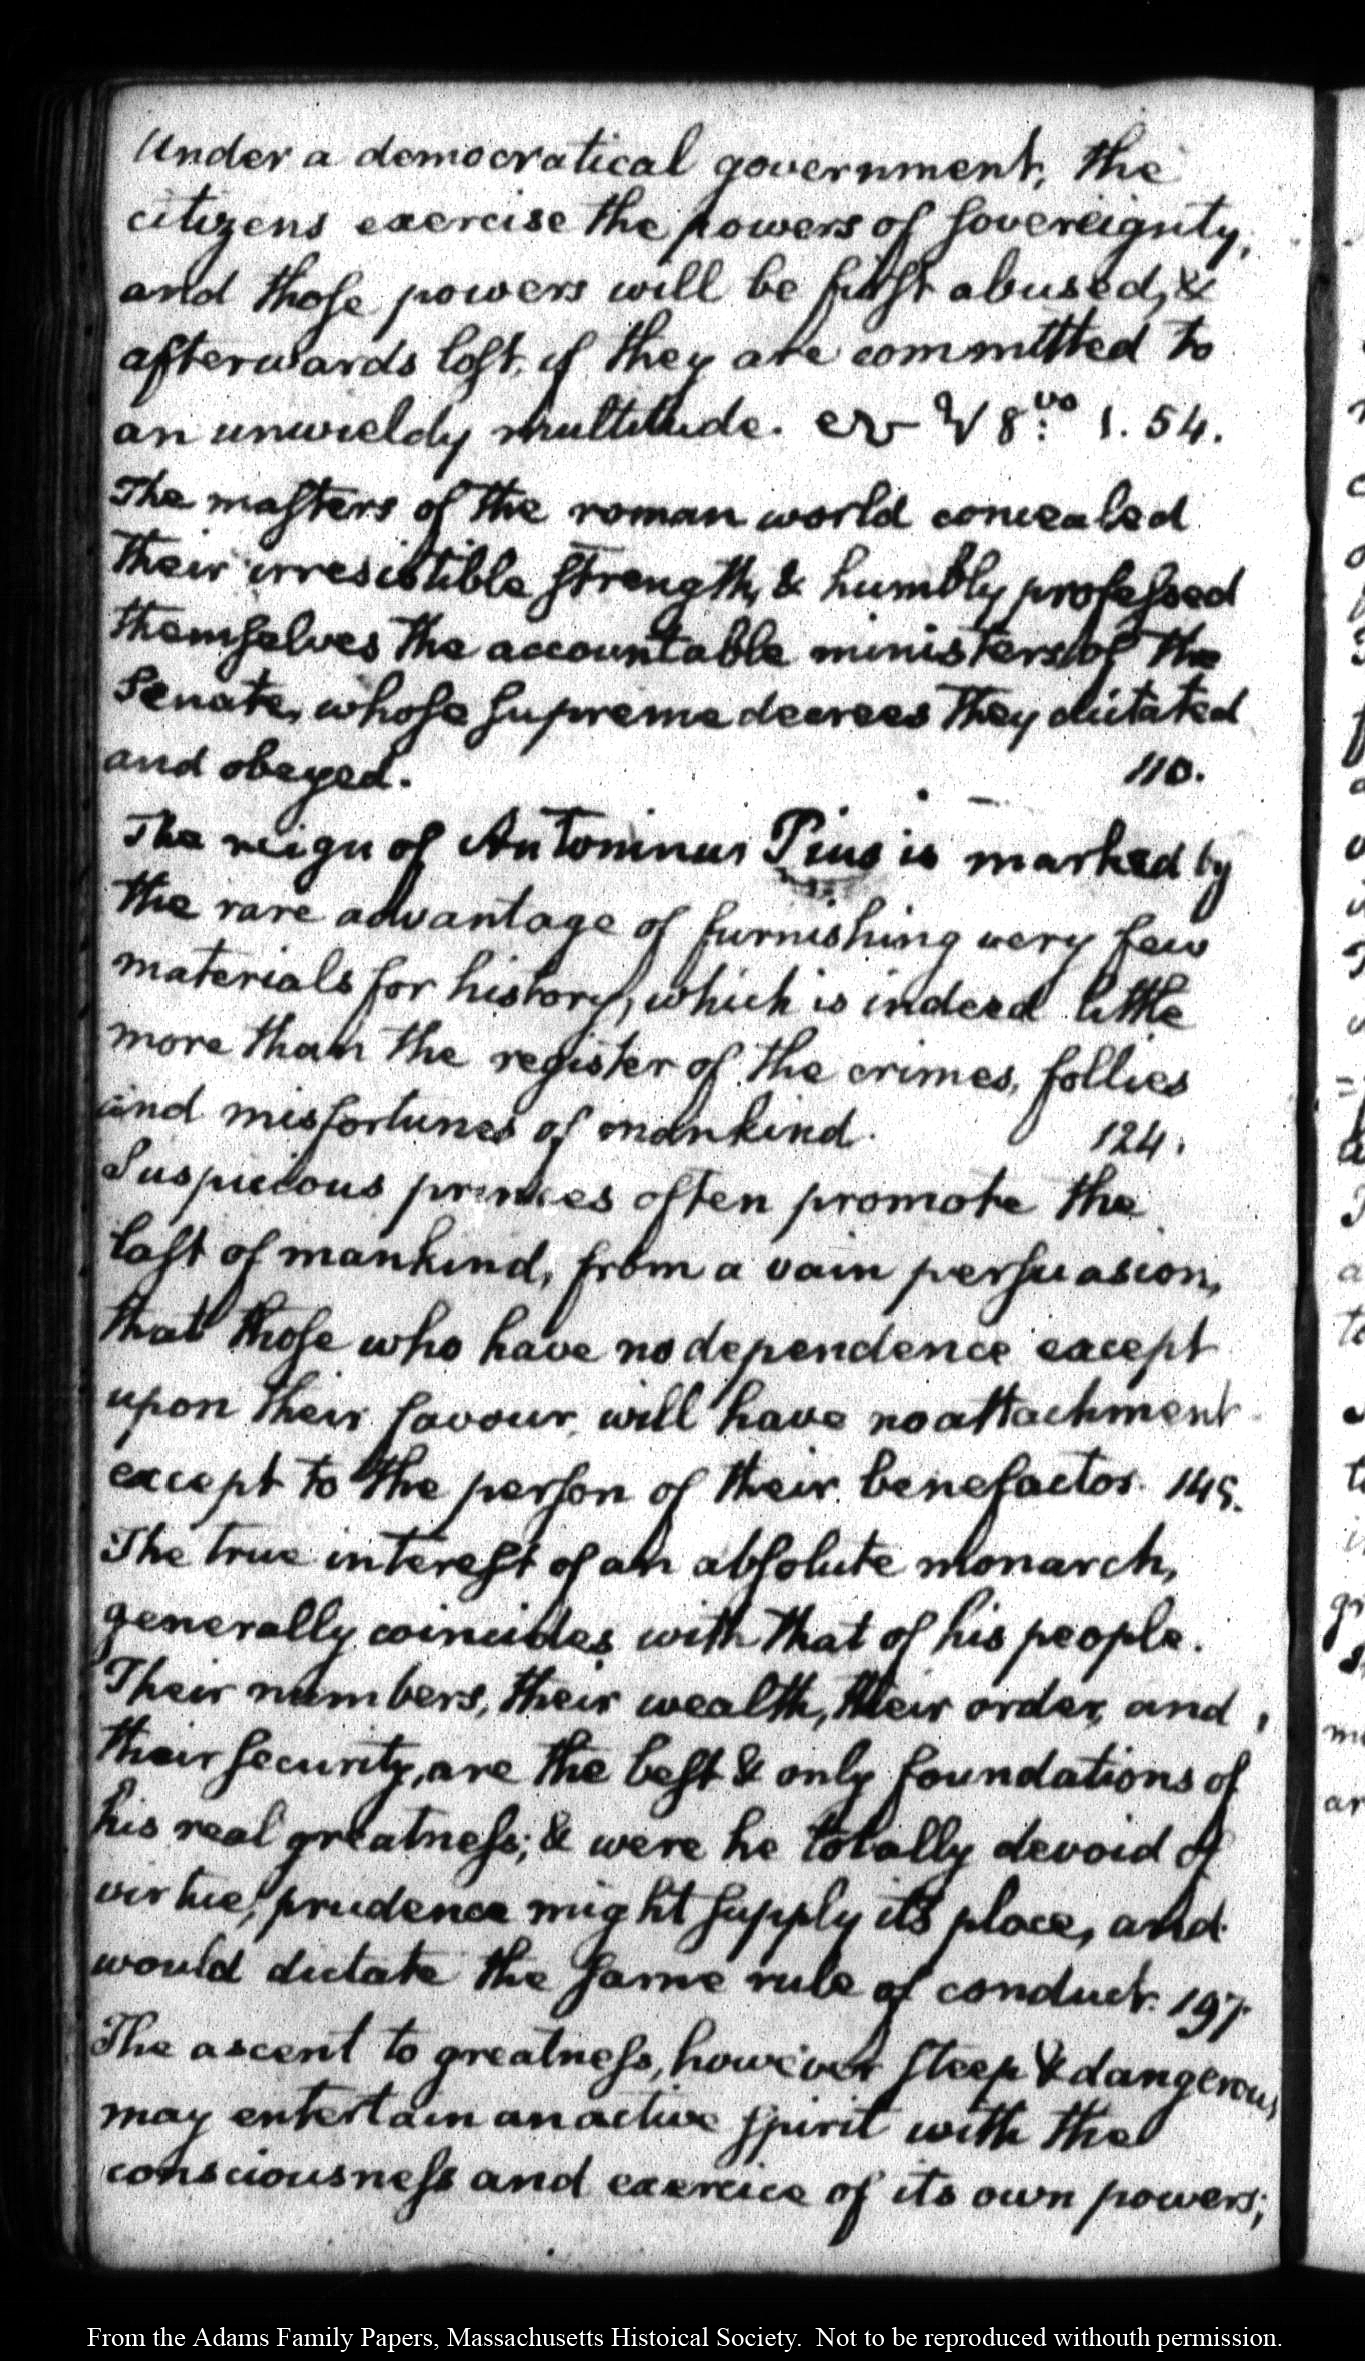 Under a democratical government, the
citizens exercise the powers of sovereignty,
and those powers will be first abused, &
afterwards lost, if they are committed to
an unwieldy multitude. 8:vo 1. 54.
The masters of the roman world concealed
their irresistible strength, & humbly professed
themselves the accountable ministers of the
Senate, whose supreme decrees they dictated
and obeyed. 110.
The reign of Antoninus Pius is marked by
the rare advantage of furnishing very few
materials for history, which is indeed little
more than the register of the crimes, follies
and misfortunes of mankind. 124.
Suspicious princes often promote the
last of mankind, from a vain persuasion,
that those who have no dependence except
upon their favour, will have no attachment
except to the person of their benefactor. 145.
The true interest of an absolute monarch,
generally coincides with that of his people.
Their numbers, their wealth, their order, and
their security, are the best & only foundations of
his real greatness; & were he totally devoid of
virtue, prudence might supply its place, and
would dictate the same rule of conduct. 197.
The ascent to greatness, however steep & dangerous,
may entertain an active spirit with the
consciousness and exercice of its own powers;
From the Adams Family Papers, Massachusetts Histoical Society. Not to be reproduced withouth permission.